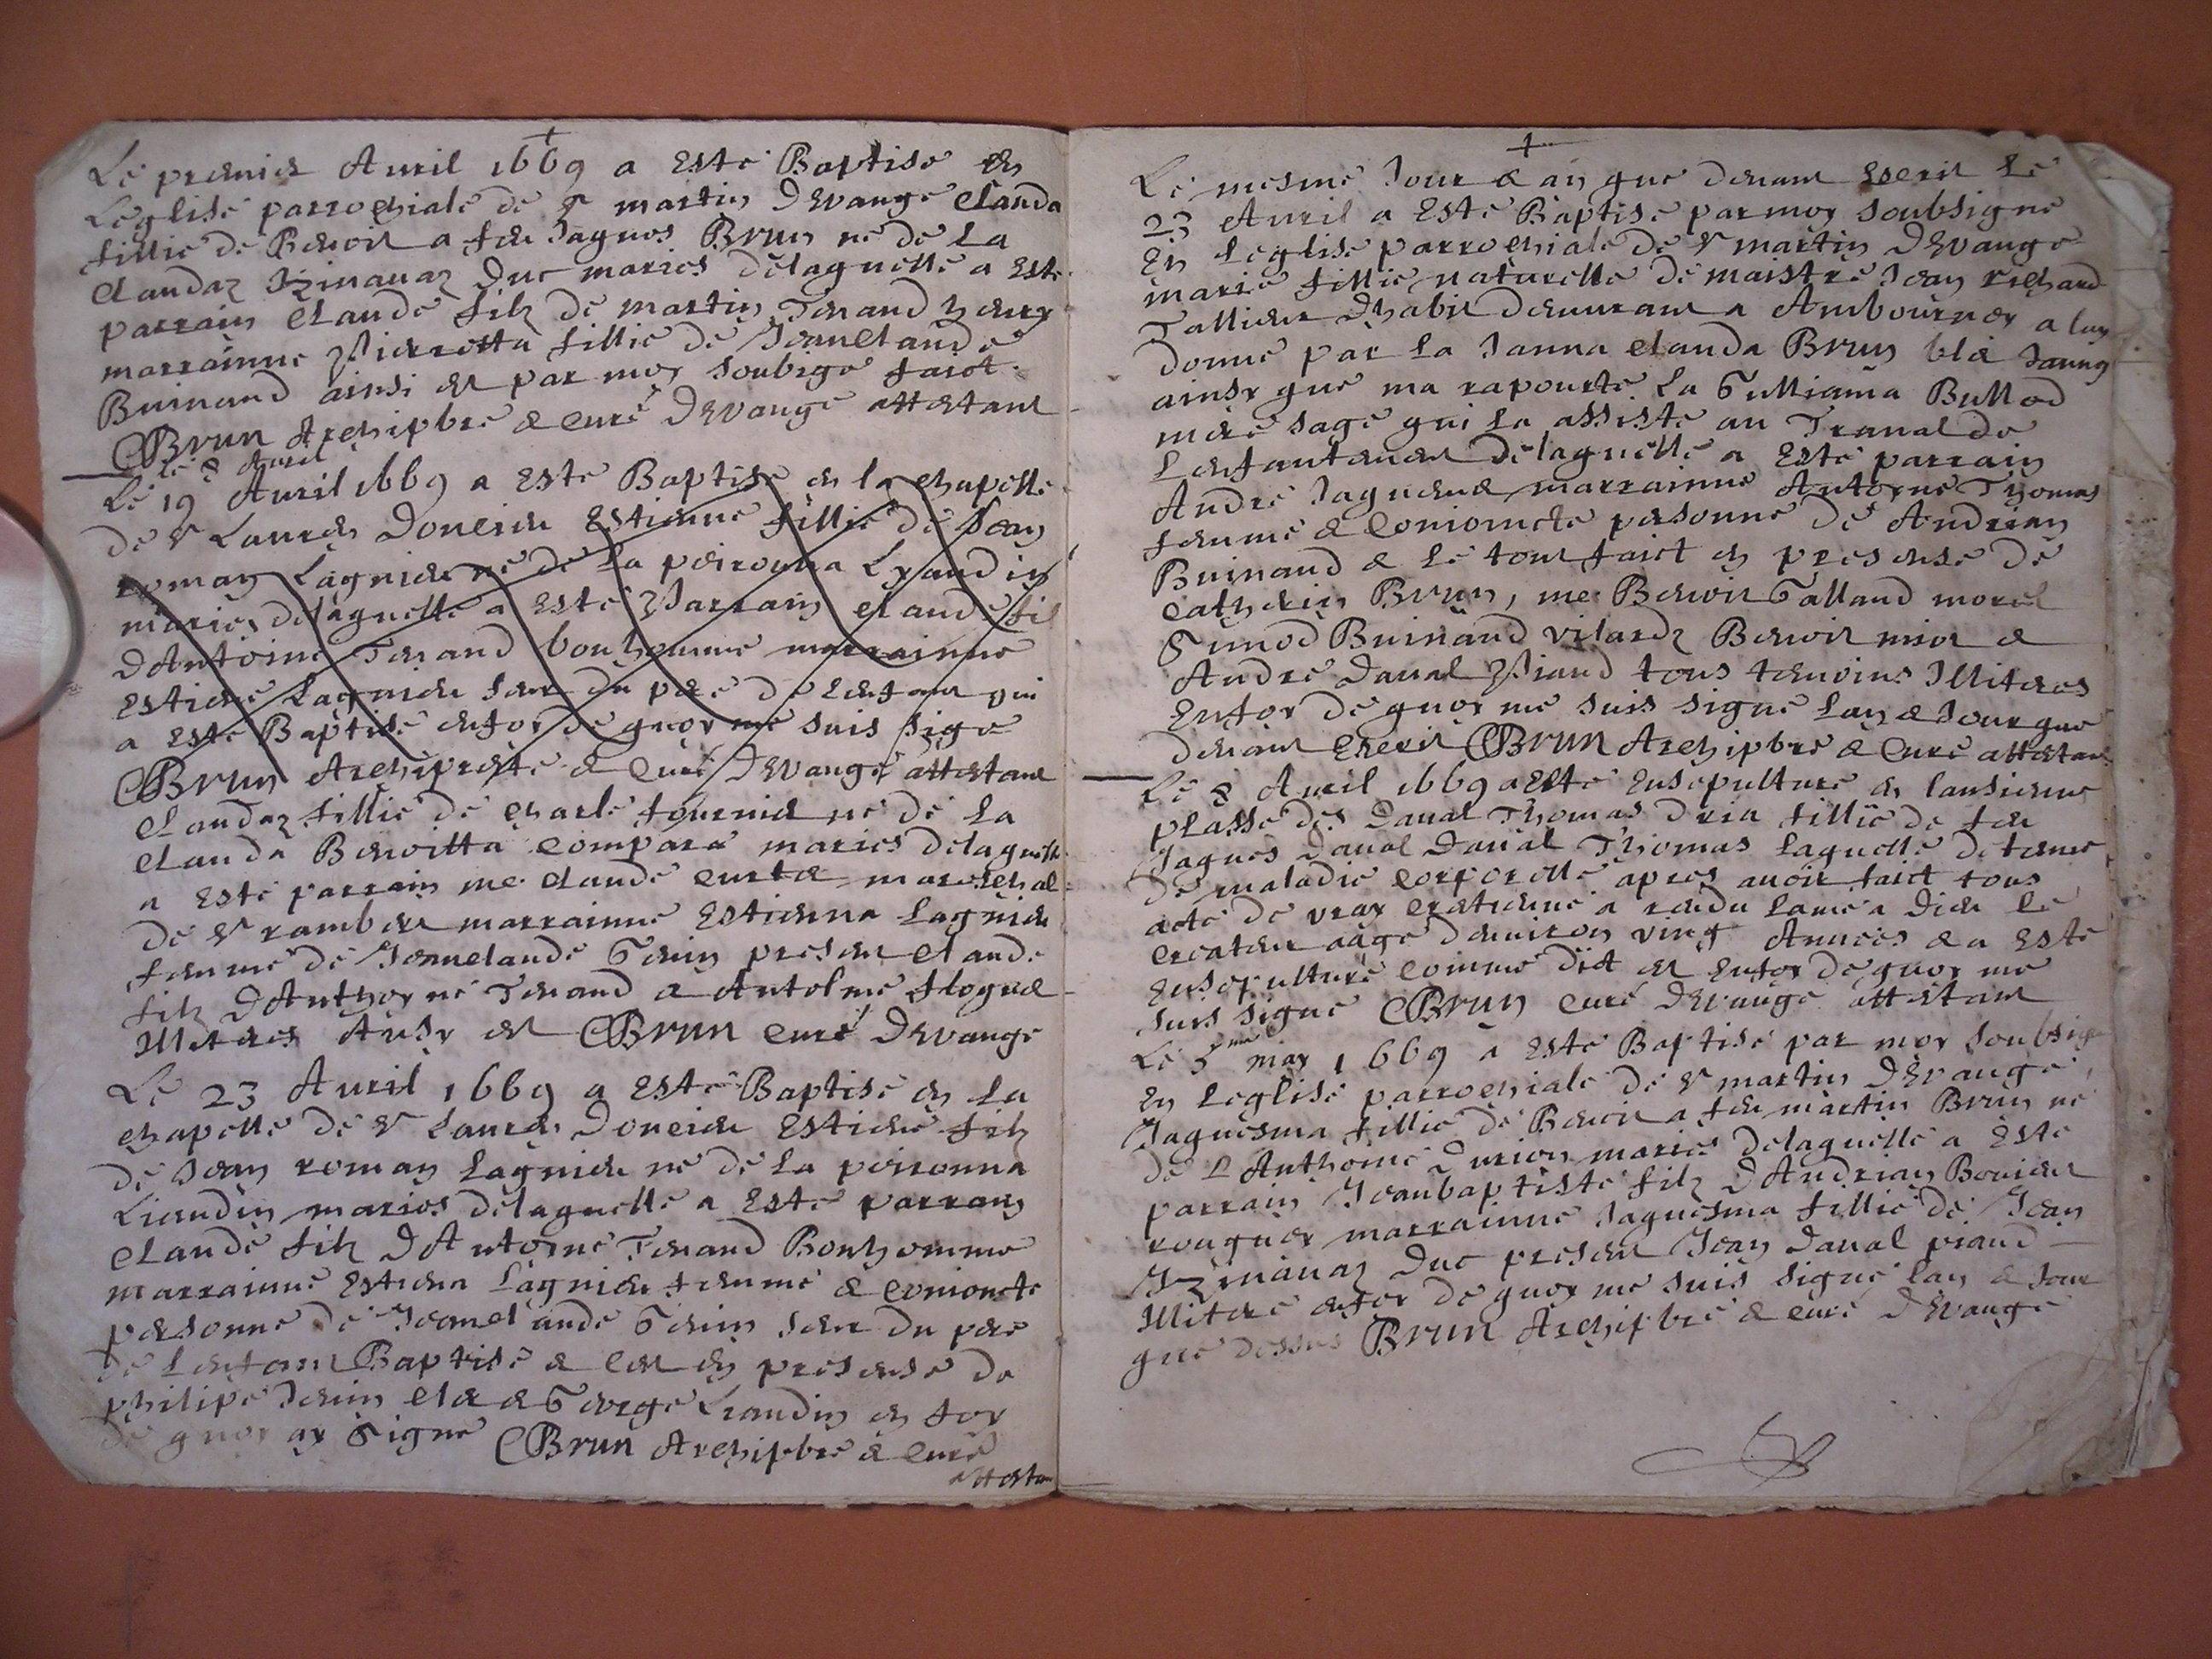 Le premier Auril 1669 a Esté Baptisé en
Leglise parrochiale de St martin DEvange Clauda
fillie de Benoit a feu Jaques Brun né de La
Claudaz Izinauaz Duc mariés delaquelle a Esté
parrain Claude filz de martin Tenand
marrainne Pierretta fillie de Jeanclaude
Buinand ainsi est par moy soubigé faict
Brun Archipbre & Curé DEvange attestant
le 8 Auril
Le 19 Auril 1669 a Esté Baptisé en la chapelle
de St Laurens Doncieu Estienne fillie de Jean
roman Lagnieu né de La peironna Lyandin
mariés delaquelle a Esté Parrain Claude fil
dAntoine Tenand bonhomme marrainne
Estiene Lagnieu seur du pere de Lenfant qui
a Esté Baptisé enfoy de quoy me suis sigé
Brun Archiprestre & Curé DEvange attestant
Claudaz fillie de Charle fournier né de La
Clauda Benoitta Compara mariés delaquelle
a Esté parrain me Claude marreschal
de St rambert marrainne Estienna Lagnieu
femme de Jeanclaude Genin present Claude
filz DAnthoyne Tenand & Antolme
Illiteres Ainsy est Brun Curé DEvange
Le 23 Auril 1669 a Esté Baptisé en La
chapelle de St Laurens Doncieu Estiené filz
de Jean roman Lagnieu né de La peironna
Liandin mariés delaquelle a Esté parrain
Claude filz DAntoyne Tenand Bonhomme
marrainne Estiena Lagnieu femme & Conioncte
personne de Jeanclaude Genin seur du pere
de Lenfant Baptisé & Ce en presense de
philipe Genin & George Liandin en foy
de quoy ay Signé Brun Archipbre & Curé
attestant
Le mesme Jour & an que devant Escrit Le
23 Auril a Esté Baptisé par moy soubsigné
En Leglise parrochiale de St martin DEvange
marie fillie naturelle de maistre Jean richard
Tallieur Dhabit demurant a Ambournay a luy
donné par La Janna Clauda Brun
ainsy que ma rapourté La Gulliama Bullod
mere sage qui La assisté au Traual de
Lenfantement delaquelle a Esté parrain
André Jaquemet marrainne Antoyne Thomas
femme & Conioincte personne de Andrian
Buinand & Le tout faict en presense de
Catherin Brun, me Benoit Galland morel
Simod Buinand vilardz Benoit &
André Daual Piand tous temoins Illiteres
Enfoy de quoy me suis signé Lan & Jour que
devant Escrit Brun Archipbre & Curé attestant
Le 8 Auril 1669 a Esté Ensepulturé en lansienne
plasse des Daual Thomas fillie de feu
Jaques Daual Daual Thomas Laquelle detenue
de maladie Corporelle apres auoir faict tous
acte de vray Cretienne a rendu Lame a Dieu Le
Createur aagé denuiron vingt Années & a Esté
Ensepulturé Comme dict est Enfoy de quoy me
suis signé Brun Curé DEvange attestant
Le 5me may 1669 a Esté Baptisé par moy soubsigé
En Leglise parrochiale de St martin DEvange
Jaquesma fillie de Benoit a feu martin Brun né
de LAnthoine Durion mariés delaquelle a Esté
parrain Jeanbaptiste filz DAndrian Bouier
rouguet marrainne Jaquesma fillie de Jean
Izinauaz Duc present Jean Daual piand
Illitere enfoy de quoy me suis signé Lan & Jour
que dessus Brun Archipbre & Curé DEvange